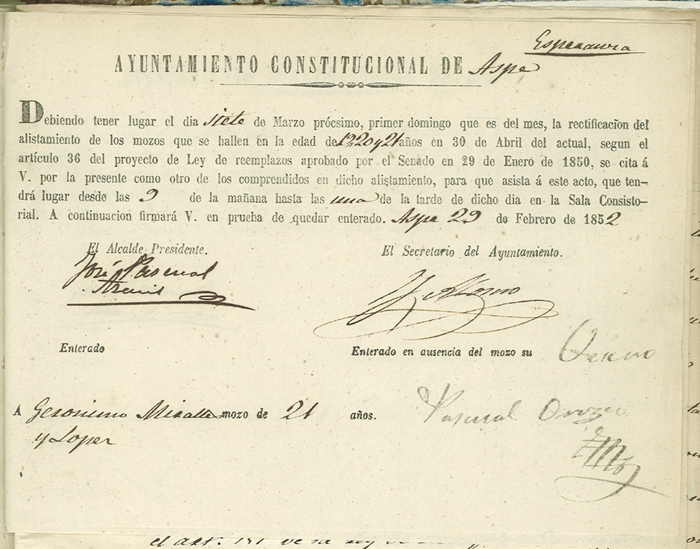 Esperanza
AYUNTAMIENTO CONSTITUCIONAL DE Aspe
Debiendo tener lugar el dia siete de Marzo prócsimo, primer domingo que es del mes, la rectificacion del
alistamiento de los mozos que se hallen en la edad de 20 y 21 años en 30 de Abril del actual, segun el
artículo 36 del proyecto de Ley de reemplazos aprobado por el Senado en 29 de Enero de 1850, se cita á
V. por la presente como otro de los comprendidos en dicho alistamiento, para que asista á este acto, que ten-
drá lugar desde las 9 de la mañana hasta las una de la tarde de dicho dia en la Sala Consisto-
rial. A continuacion firmará V. en prueba de quedar enterado. Aspe 29 de Febrero de 1852
El Alcalde Presidente. El Secretario del Ayuntamiento.
José Pascual
Enterado Enterado en ausencia del mozo su Vecino
A Geronimo Miralles mozo de 21 años. Pascual Orozco
y Lopez